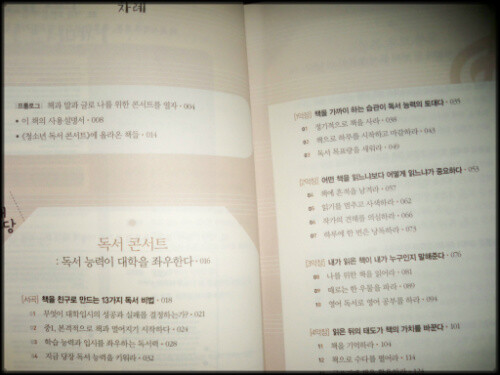 차례
프롤로그 책과 말과 글로 나를 위한 콘서트를 열자 · 004
• 이 책의 사용설명서 · 008
• 《청소년 독서 콘서트》에 올라온 책들 · 014
독서 콘서트
: 독서 능력이 대학을 좌우한다 · 016
[서곡] 책을 친구로 만드는 13가지 독서 비법 · 018
01 무엇이 대학입시의 성공과 실패를 결정하는가? · 021
02 중1, 본격적으로 책과 멀어지기 시작하다 · 024
03 학습 능력과 입시를 좌우하는 독서력 · 028
04 지금 당장 독서 능력을 키워라 · 032
[1악장] 책을 가까이 하는 습관이 독서 능력의 토대다 · 035
정기적으로 책을 사라 · 038
책으로 하루를 시작하고 마감하라 · 043
독서 목표량을 세워라 · 049
[2악장] 어떤 책을 읽느냐보다 어떻게 읽느냐가 중요하다 · 053
책에 흔적을 남겨라 · 057
읽기를 멈추고 사색하라 · 062
작가의 견해를 의심하라 · 066
하루에 한 번은 낭독하라 · 073
[3악장] 내가 읽은 책이 내가 누구인지 말해준다 · 076
나를 위한 책을 읽어라 · 081
때로는 한 우물을 파라 · 088
영어 독서로 영어 공부를 하라 · 094
[4악장] 읽은 뒤의 태도가 책의 가치를 바꾼다 · 101
책을 기억하라 · 104
책으로 수다를 떨어라 · 114